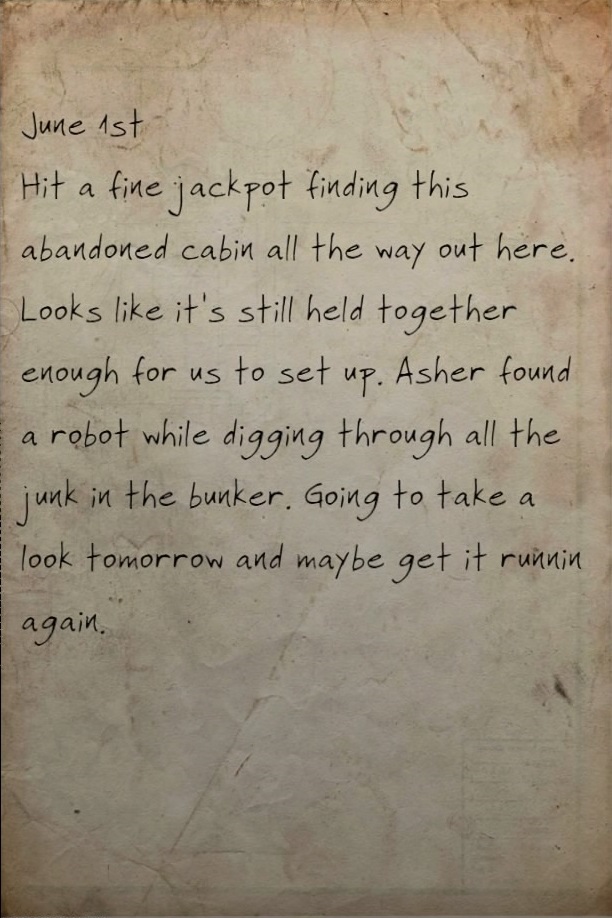 June 1st
Hit a fine jackpot finding this
abandoned cabin all the way out here.
Looks like it's still held together
enough for us to set up. Asher found
a robot while digging through all the
junk in the bunker. Going to take a
look tomorrow and maybe get it runnin
again.